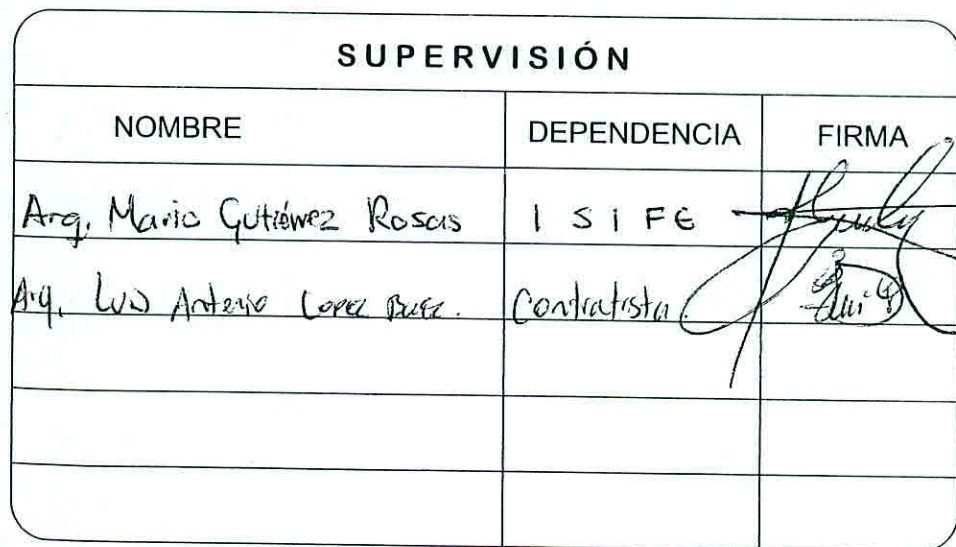 SUPERVISIÓN
NOMBRE DEPENDENCIA FIRMA
Arq. Mario Gutiérrez Rosas I S I F E
Arq. Luis Antonio Lopez Contratista